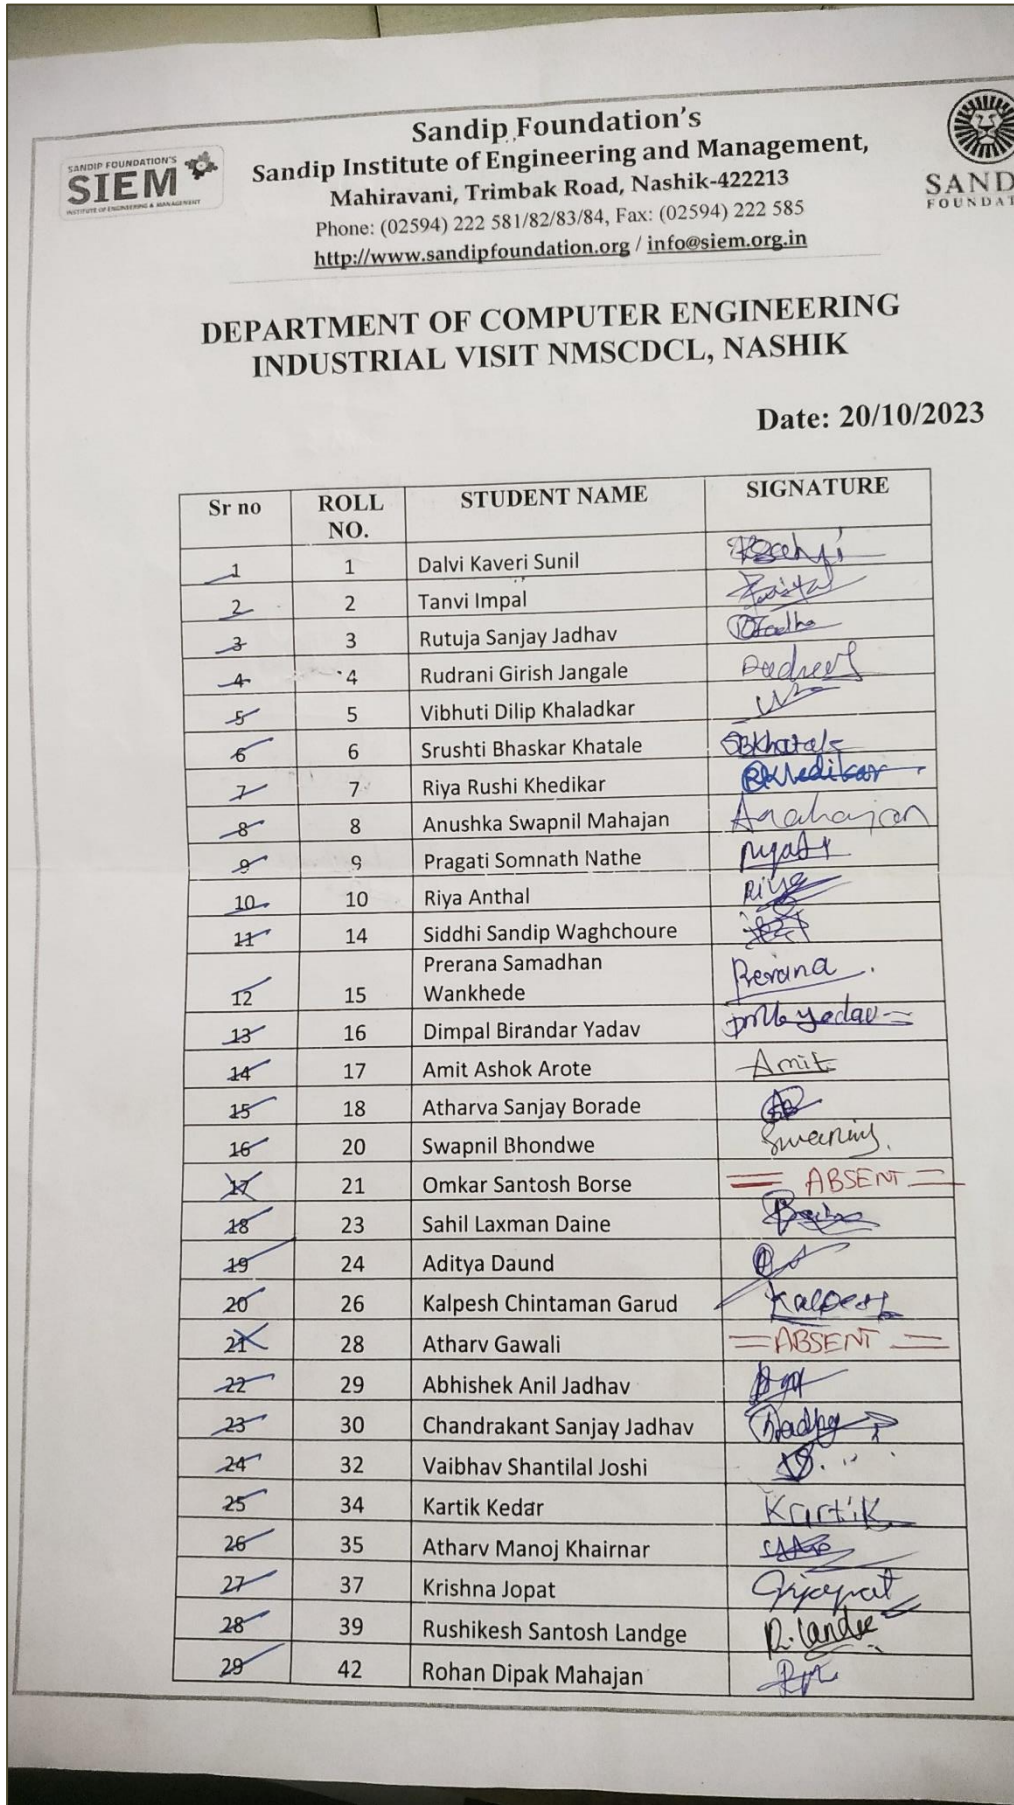 SANDIP FOUNDATION'S
SIEM
INSTITUTE OF ENGINEERING & MANAGEMENT
Sandip Foundation's
Sandip Institute of Engineering and Management,
Mahiravani, Trimbak Road, Nashik-422213
Phone: (02594) 222 581/82/83/84, Fax: (02594) 222 585
http://www.sandipfoundation.org / info@siem.org.in
SAND
FOUNDAT
DEPARTMENT OF COMPUTER ENGINEERING
INDUSTRIAL VISIT NMSCDCL, NASHIK
Date: 20/10/2023
Sr no ROLL NO. STUDENT NAME SIGNATURE
1 1 Dalvi Kaveri Sunil
2 2 Tanvi Impal
3 3 Rutuja Sanjay Jadhav
4 4 Rudrani Girish Jangale
5 5 Vibhuti Dilip Khaladkar
6 6 Srushti Bhaskar Khatale SBKhatale
7 7 Riya Rushi Khedikar RKhedikar
8 8 Anushka Swapnil Mahajan Amahajan
9 9 Pragati Somnath Nathe
10 10 Riya Anthal Riya
11 14 Siddhi Sandip Waghchoure
12 15 Prerana Samadhan Wankhede Prerana
13 16 Dimpal Birandar Yadav Yadav
14 17 Amit Ashok Arote Amit
15 18 Atharva Sanjay Borade
16 20 Swapnil Bhondwe
17 21 Omkar Santosh Borse = ABSENT =
18 23 Sahil Laxman Daine
19 24 Aditya Daund
20 26 Kalpesh Chintaman Garud Kalpesh
21 28 Atharv Gawali = ABSENT =
22 29 Abhishek Anil Jadhav
23 30 Chandrakant Sanjay Jadhav
24 32 Vaibhav Shantilal Joshi
25 34 Kartik Kedar Kartik
26 35 Atharv Manoj Khairnar
27 37 Krishna Jopat
28 39 Rushikesh Santosh Landge R. Landge
29 42 Rohan Dipak Mahajan